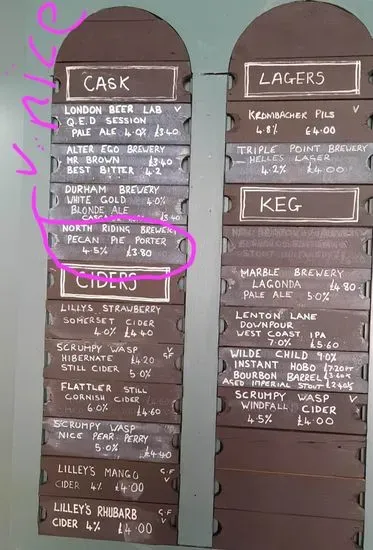 v. nice
CASK
LONDON BEER LAB V
Q.E.D SESSION
PALE ALE 4.0% £3.40
ALTER EGO BREWERY
MR BROWN £3.40
BEST BITTER 4.2
DURHAM BREWERY
WHITE GOLD 4.0%
BLONDE ALE
£3.40
NORTH RIDING BREWERY
PECAN PIE PORTER
4.5% £3.80
CIDERS
LILLY'S STRAWBERRY
SOMERSET CIDER
4.0% £4.40
SCRUMPY WASP V
HIBERNATE £4.20 GF
STILL CIDER 5.0%
FLATTLER STILL
CORNISH CIDER
6.0% £4.60
SCRUMPY WASP
NICE PEAR PERRY
5.0% £4.40
LILLEY'S MANGO G.F
CIDER 4% £4.00 V
LILLEY'S RHUBARB G.F
CIDER 4% £4.00 V
LAGERS
KROMBACHER PILS V
4.8% £4.00
TRIPLE POINT BREWERY
HELLES LAGER
4.2% £4.00
KEG
MARBLE BREWERY
LAGONDA £4.80
PALE ALE 5.0%
LENTON LANE
DOWNPOUR
WEST COAST IPA
7.0% £5.60
WILDE CHILD 9.0%
INSTANT HOBO £7.20PT
BOURBON BARREL £3.60½
AGED IMPERIAL STOUT £2.40⅓
SCRUMPY WASP V
WINDFALL CIDER
4.5% £4.00